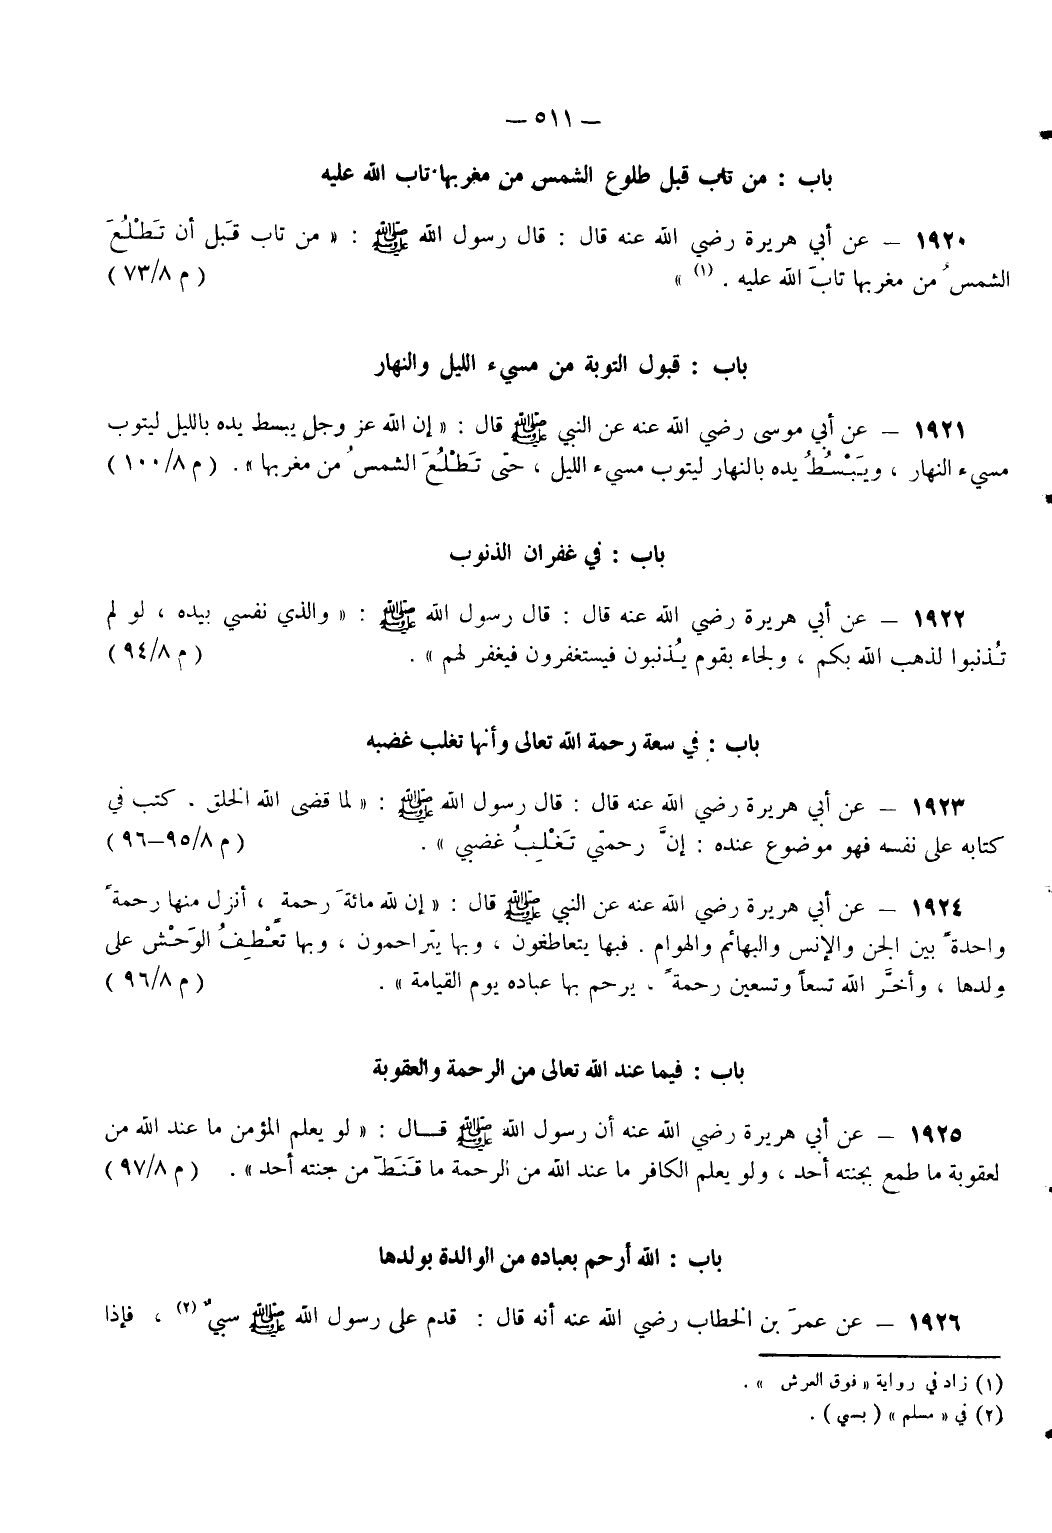 — ٥١١ —
باب : من تاب قبل طلوع الشمس من مغربها تاب الله عليه
١٩٢٠ – عن أبي هريرة رضي الله عنه قال : قال رسول الله ﷺ : « من تاب قَبل أن تَطْلُعَ
الشمسُ من مغربها تابَ الله عليه . (١) » ( م ٧٣/٨ )
باب : قبول التوبة من مسيء الليل والنهار
١٩٢١ – عن أبي موسى رضي الله عنه عن النبي ﷺ قال : « إن الله عز وجل يبسط يده بالليل ليتوب
مسيء النهار ، ويَبْسُطُ يده بالنهار ليتوب مسيء الليل ، حتّى تَطْلُعَ الشمسُ من مغربها » . ( م ١٠٠/٨ )
باب : في غفران الذنوب
١٩٢٢ – عن أبي هريرة رضي الله عنه قال : قال رسول الله ﷺ : « والذي نفسي بيده ، لو لم
تُذنبوا لذهب الله بكم ، ولجاء بقوم يُذنبون فيستغفرون فيغفر لهم » . ( م ٩٤/٨ )
باب : في سعة رحمة الله تعالى وأنها تغلب غضبه
١٩٢٣ – عن أبي هريرة رضي الله عنه قال : قال رسول الله ﷺ : « لما قضى الله الخلق . كتب في
كتابه على نفسه فهو موضوع عنده : إنَّ رحمتي تَغْلِبُ غضبي » . ( م ٩٥/٨–٩٦ )
١٩٢٤ – عن أبي هريرة رضي الله عنه عن النبي ﷺ قال : « إن لله مائةَ رحمةٍ ، أنزل منها رحمةً
واحدةً بين الجن والإنس والبهائم والهوام . فبها يتعاطفون ، وبها يتراحمون ، وبها تعْطِفُ الوَحْش على
ولدها ، وأخَّر الله تسعاً وتسعين رحمةً . يرحم بها عباده يوم القيامة » . ( م ٩٦/٨ )
باب : فيما عند الله تعالى من الرحمة والعقوبة
١٩٢٥ – عن أبي هريرة رضي الله عنه أن رسول الله ﷺ قــال : « لو يعلم المؤمن ما عند الله من
لعقوبة ما طمع بجنته أحد ، ولو يعلم الكافر ما عند الله من الرحمة ما قَنَطَ من جنته أحد » . ( م ٩٧/٨ )
باب : الله أرحم بعباده من الوالدة بولدها
١٩٢٦ – عن عمرَ بن الخطاب رضي الله عنه أنه قال : قدم على رسول الله ﷺ سبيٌ (٢) ، فإذا
(١) زاد في رواية « فوق العرش » .
(٢) في « مسلم » ( بسبي ) .